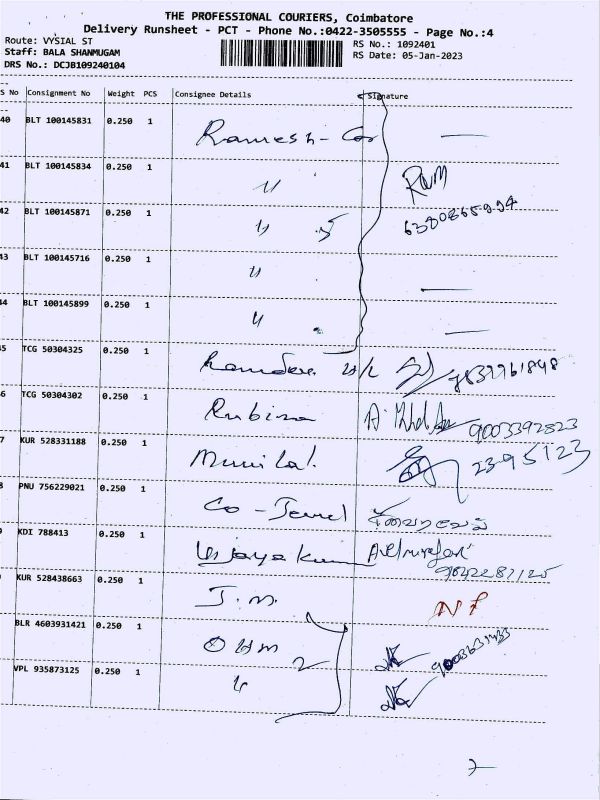 THE PROFESSIONAL COURIERS, Coimbatore
Delivery Runsheet - PCT - Phone No.:0422-3505555 - Page No.:4
Route: VYSIAL ST
RS No.: 1092401
Staff: BALA SHANMUGAM
RS Date: 05-Jan-2023
DRS No.: DCJB109240104
S No Consignment No Weight PCS Consignee Details Signature
40 BLT 100145831 0.250 1 Ramesh - Co
41 BLT 100145834 0.250 1 "
42 BLT 100145871 0.250 1 " 5
43 BLT 100145716 0.250 1 "
44 BLT 100145899 0.250 1 "
45 TCG 50304325 0.250 1
6 TCG 50304302 0.250 1 Rubina 9003392823
7 KUR 528331188 0.250 1 Munilal. 23-95123
8 PNU 756229021 0.250 1 Co - Jewel
9 KDI 788413 0.250 1 Vijayakum
KUR 528438663 0.250 1 J.M. NP
BLR 4603931421 0.250 1 OHM 2
VPL 935873125 0.250 1 "